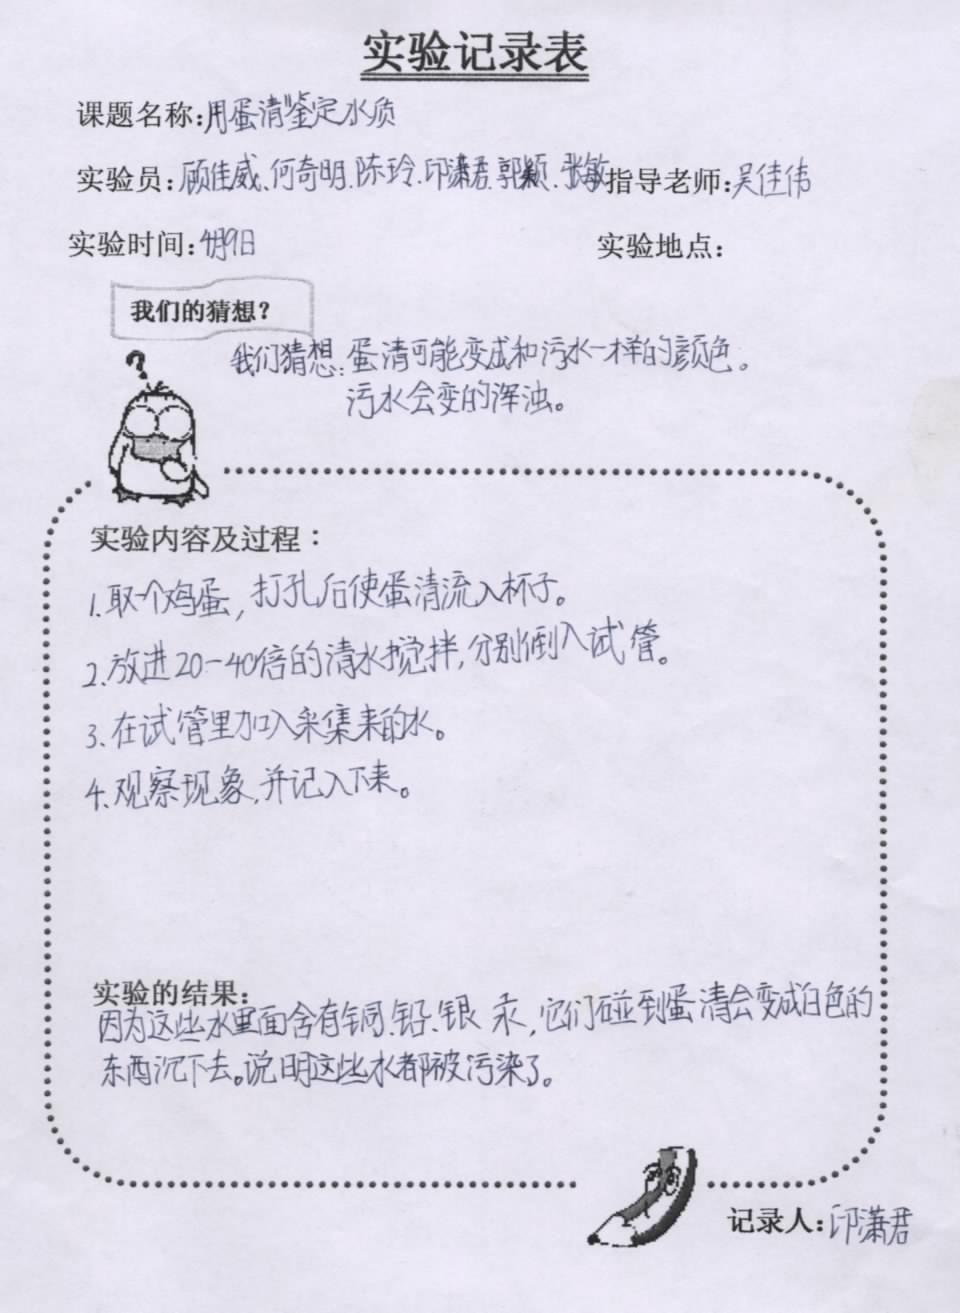 实验记录表
课题名称:用蛋清鉴定水质
实验员:顾佳威、何奇明、陈玲、邱潇君、郭颖、张敏指导老师:吴佳伟
实验时间:4月9日 实验地点:
我们的猜想?
?
我们猜想:蛋清可能变成和污水一样的颜色。
污水会变的浑浊。
实验内容及过程:
1.取个鸡蛋,打孔后使蛋清流入杯子。
2.放进20-40倍的清水搅拌,分别倒入试管。
3.在试管里加入采集来的水。
4.观察现象,并记入下来。
实验的结果:
因为这些水里面含有铜、铅、银、汞,它们碰到蛋清会变成白色的
东西沉下去。说明这些水都被污染了。
记录人:邱潇君